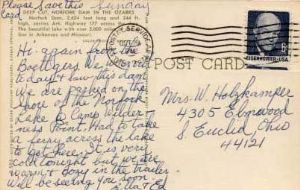 Please Save this Sunday
Card.
DEEP CUT, NORFORK DAM IN THE OZARKS
Norfork Dam, 2,624 feet long and 244 ft.
high, carries Ark. Highway 177 across
The beautiful lake with over 5,000 miles
in Arkansas and Missouri.
Hi again from the
Boettgers. We
to day & saw this dam
We are parked on the
shore of the Norfork
Lake @ Camp
ness Point. Had to take
a ferry across the lake
to get here. It is very
cold tonight but we are
warm & dozy in the trailer
Will be seeing you soon
POST CARD
EISENHOWER·USA
Mrs. W. Holzkamper
4305 Elmwood
S Euclid, Ohio
44121